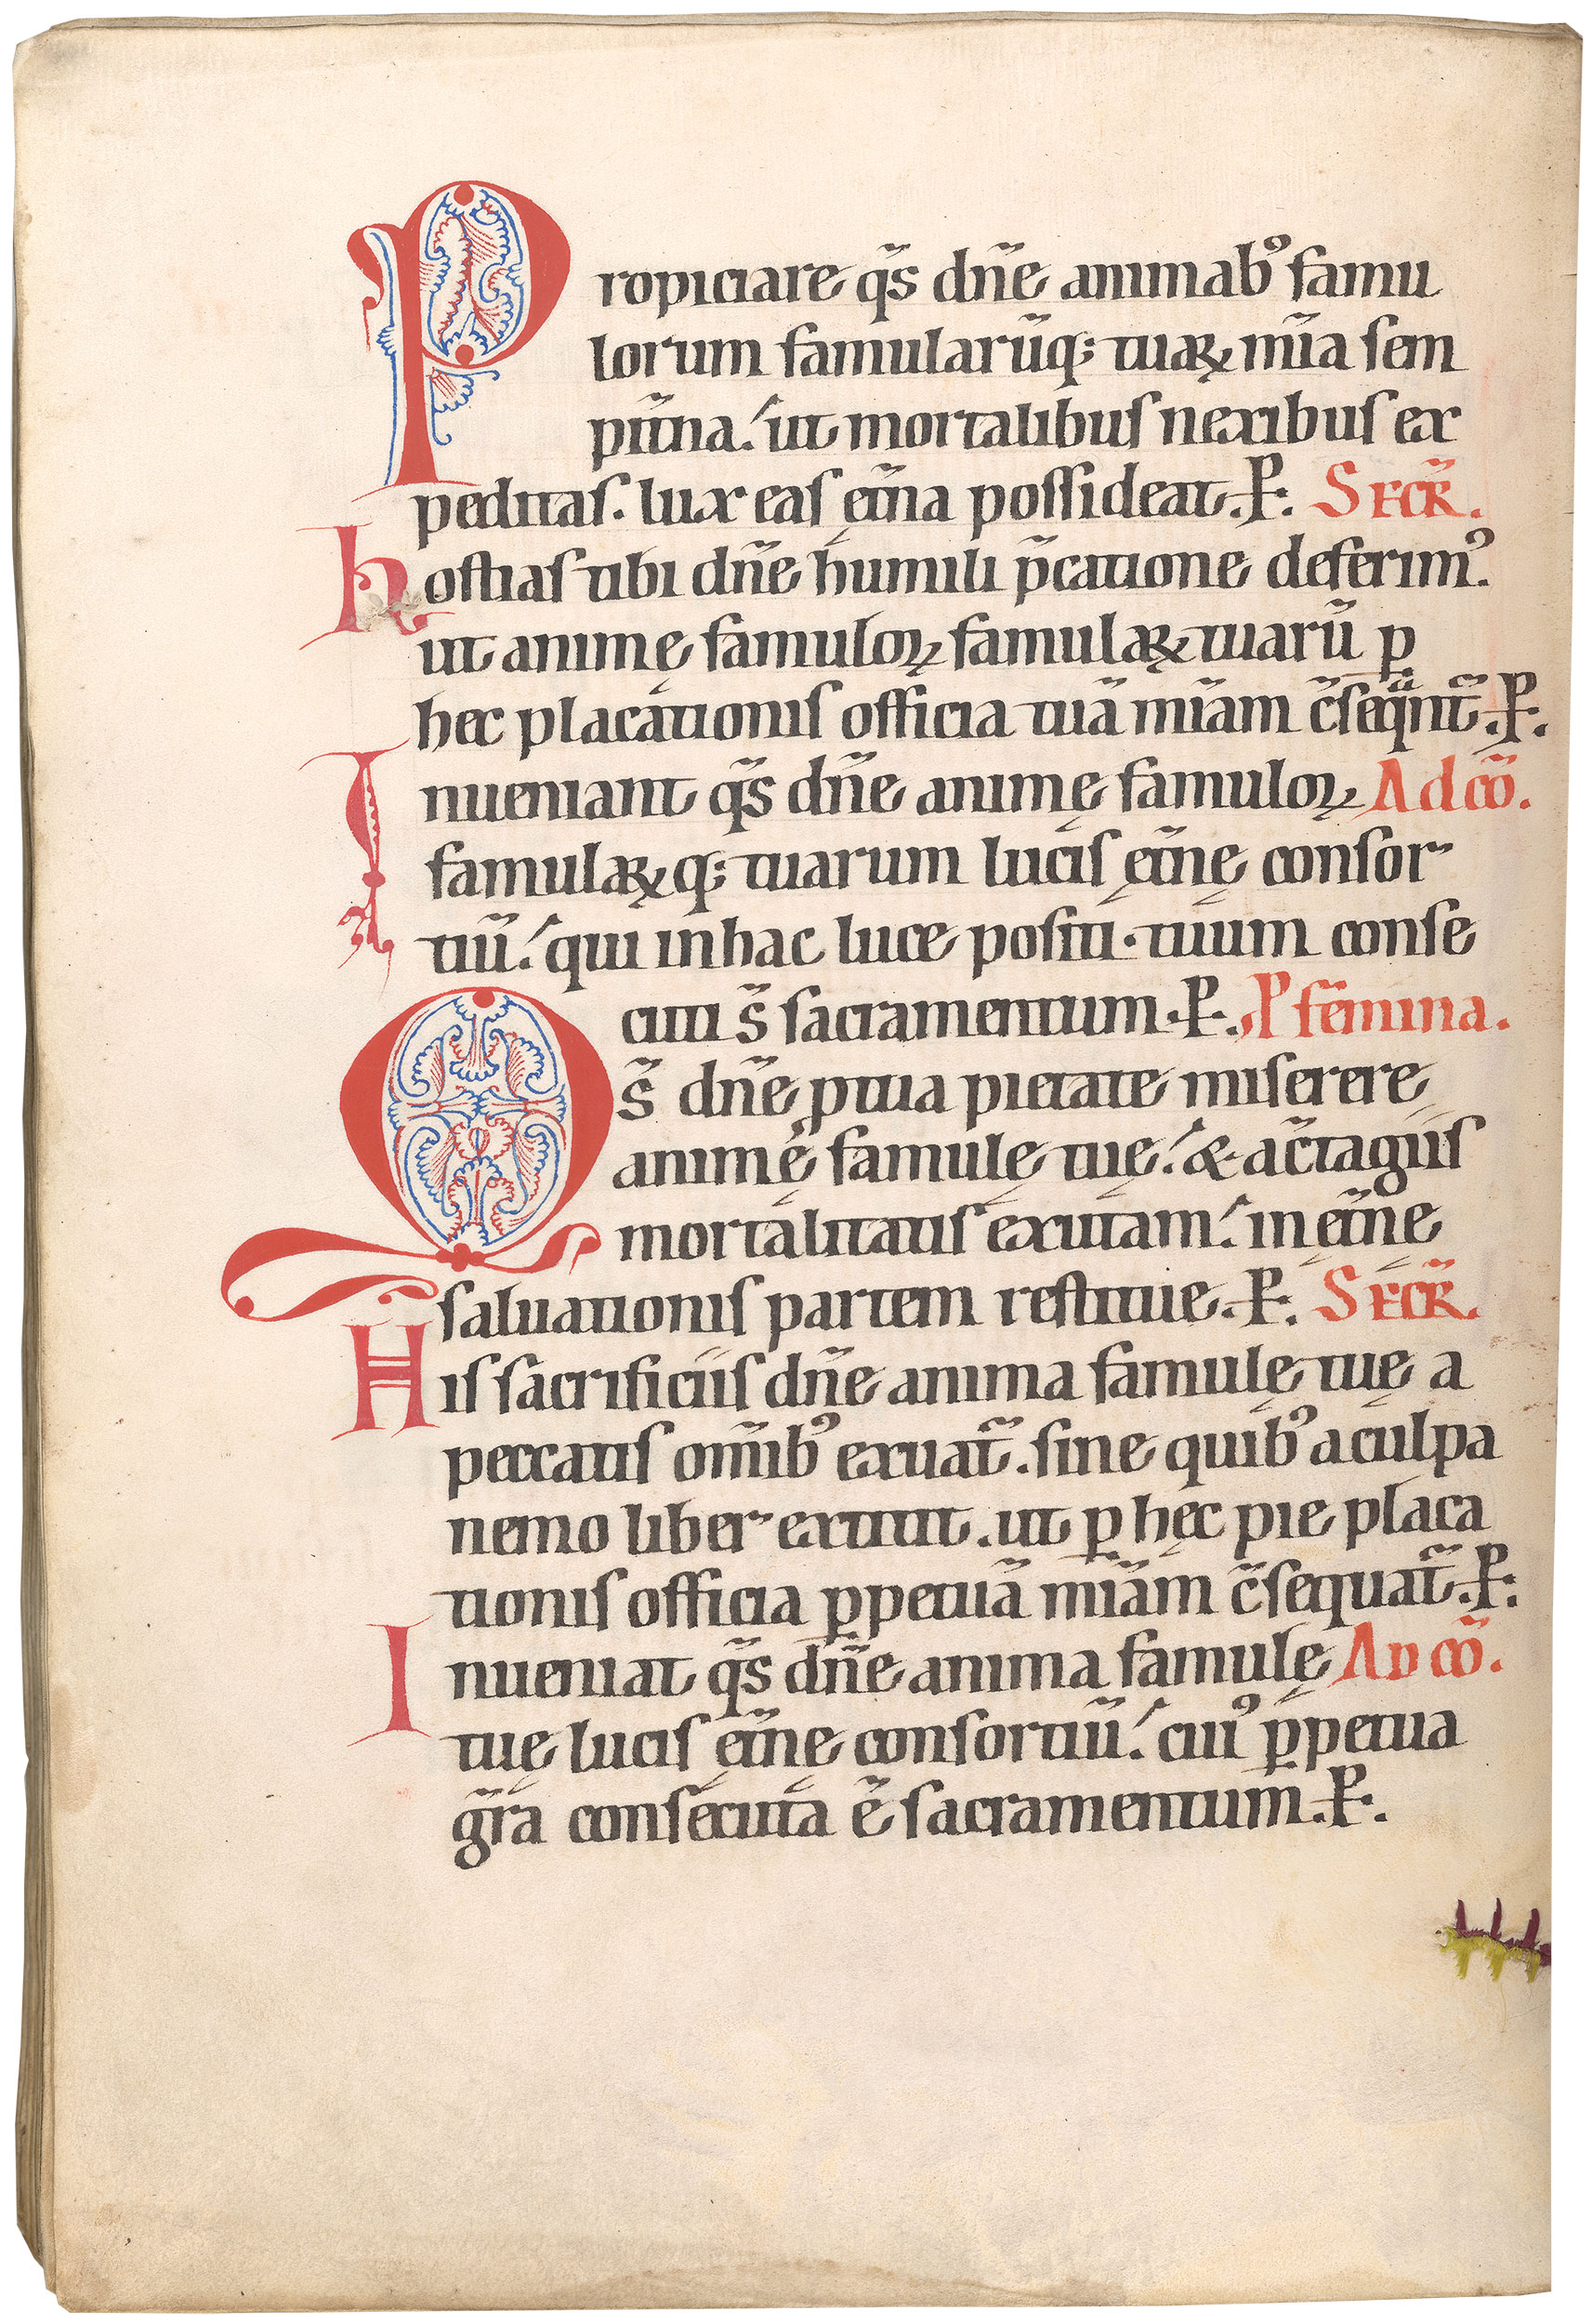 Propiciare q̄s dn̄e animabꝰ famu
lorum famularūq; tuaꝝ mīa sem
pit̄na. ut mortalibus nexibus ex
peditas. lux eas et̄na possideat. P. SECR̄.
hostias tibi dn̄e humili p̄catione deferimꝰ.
ut animę famuloꝝ famulaꝝ tuarū ꝑ
hec placationis officia tuā mīam c̄seqūnt̄. P.
Inueniant q̄s dn̄e animę famuloꝝ Ad cō.
famulaꝝq; tuarum lucis ęt̄nę consor
tiū. qui in hac luce positi. tuum conse
cuti s̄ sacramentum. P. P femina.
Qs̄ dn̄e ꝓ tua pietate miserere
animę famulę tuę. & a c̄tagiis
mortalitatis exutam. in ęt̄nę
saluationis partem restitue. P. SECR̄.
His sacrificiis dn̄e anima famulę tuę a
peccatis omībꝰ exuat̄. sine quibꝰ a culpa
nemo liber extitit. ut ꝑ hęc pie placa
tionis officia ꝑpetuā mīam c̄sequat̄. P.
Inueniat q̄s dn̄e anima famulę AD cō.
tuę lucis ęt̄nę consortiū. cuiꝰ ꝑpetua
gr̄a consecuta ē sacramentum. P.